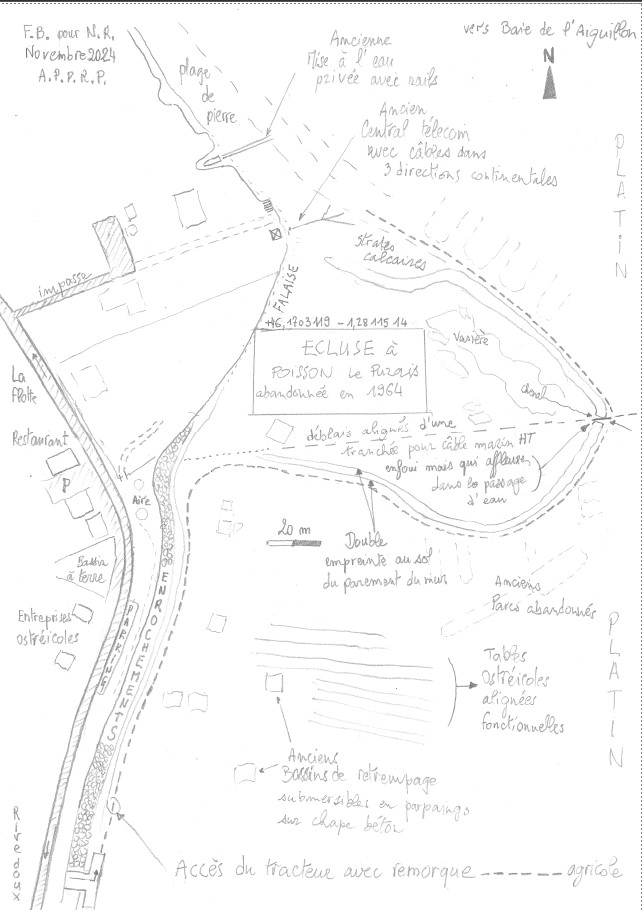 F.B. pour N.R.
Novembre 2024
A.P.P.R.P.
vers Baie de l'Aiguillon
N
Ancienne
Mise à l'eau
privée avec rails
plage
de
pierre
Ancien
Central télécom
avec câbles dans
3 directions continentales
PLATIN
Strates
calcaires
impasse
FALAISE
46,1703119 -1,2811514
ECLUSE à
POISSON Le Purais
abandonnée en 1964
Vasière
chenal
La
Flotte
Restaurant
P
déblais alignés d'une
tranchée pour câble marin HT
enfoui mais qui affleure
dans le passage
d'eau
Aire
20 m
Double
empreinte au sol
du parement du mur
Bassin
à terre
Anciens
Parcs abandonnés
Entreprises
ostréicoles
PARKING
ENROCHEMENTS
PLATIN
Tables
Ostréicoles
alignées
fonctionnelles
Anciens
Bassins de retrempage
submersibles en parpaings
sur chape béton
Rivedoux
Accès du tracteur avec remorque agricole